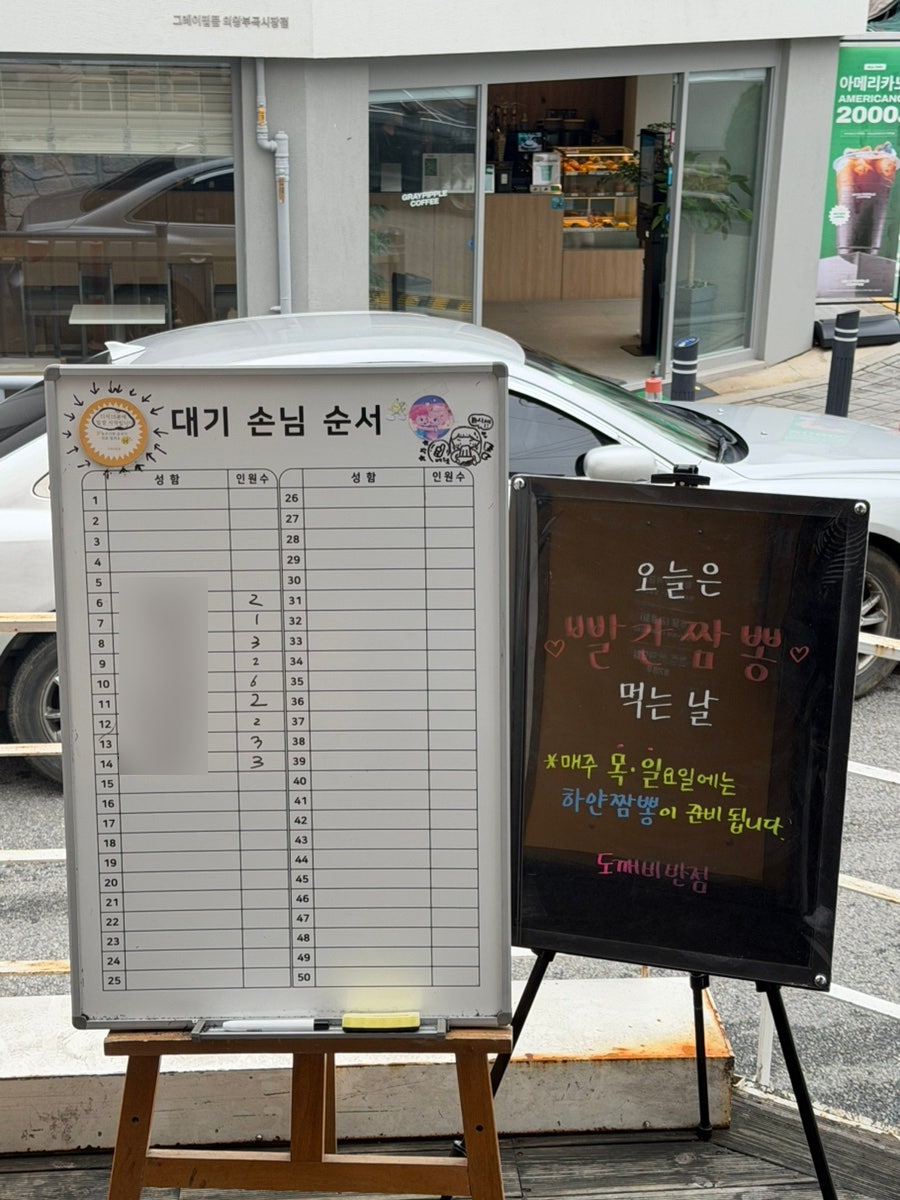 그레이핍플 의왕부곡시장점
GRAYPIPPLE
COFFEE
아메리카노
AMERICANO
2000
대기 손님 순서
성 함 인원수 성 함 인원수
1 26
2 27
3 28
4 29
5 30
6 2 31
7 1 32
8 3 33
9 2 34
10 6 35
11 2 36
12 2 37
13 3 38
14 3 39
15 40
16 41
17 42
18 43
19 44
20 45
21 46
22 47
23 48
24 49
25 50
오늘은
빨간짬뽕
먹는 날
*매주 목·일요일에는
하얀짬뽕이 준비 됩니다.
도깨비반점